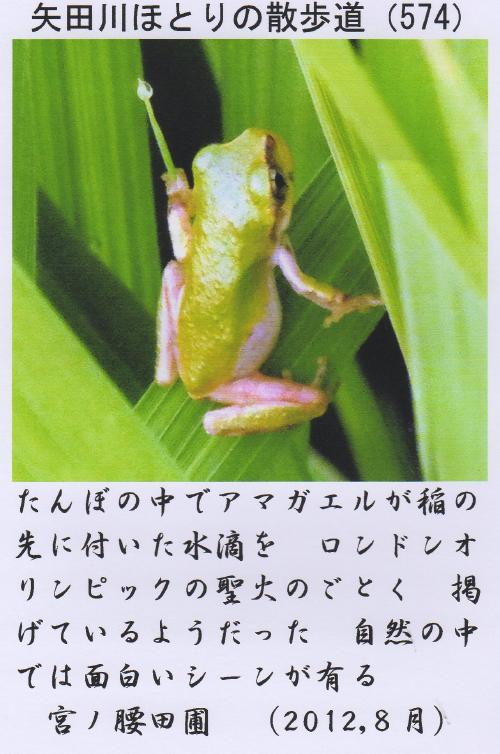 矢田川ほとりの散歩道（574）
たんぼの中でアマガエルが稲の
先に付いた水滴を　ロンドンオ
リンピックの聖火のごとく　掲
げているようだった　自然の中
では面白いシーンが有る
宮ノ腰田圃　（2012,8月）